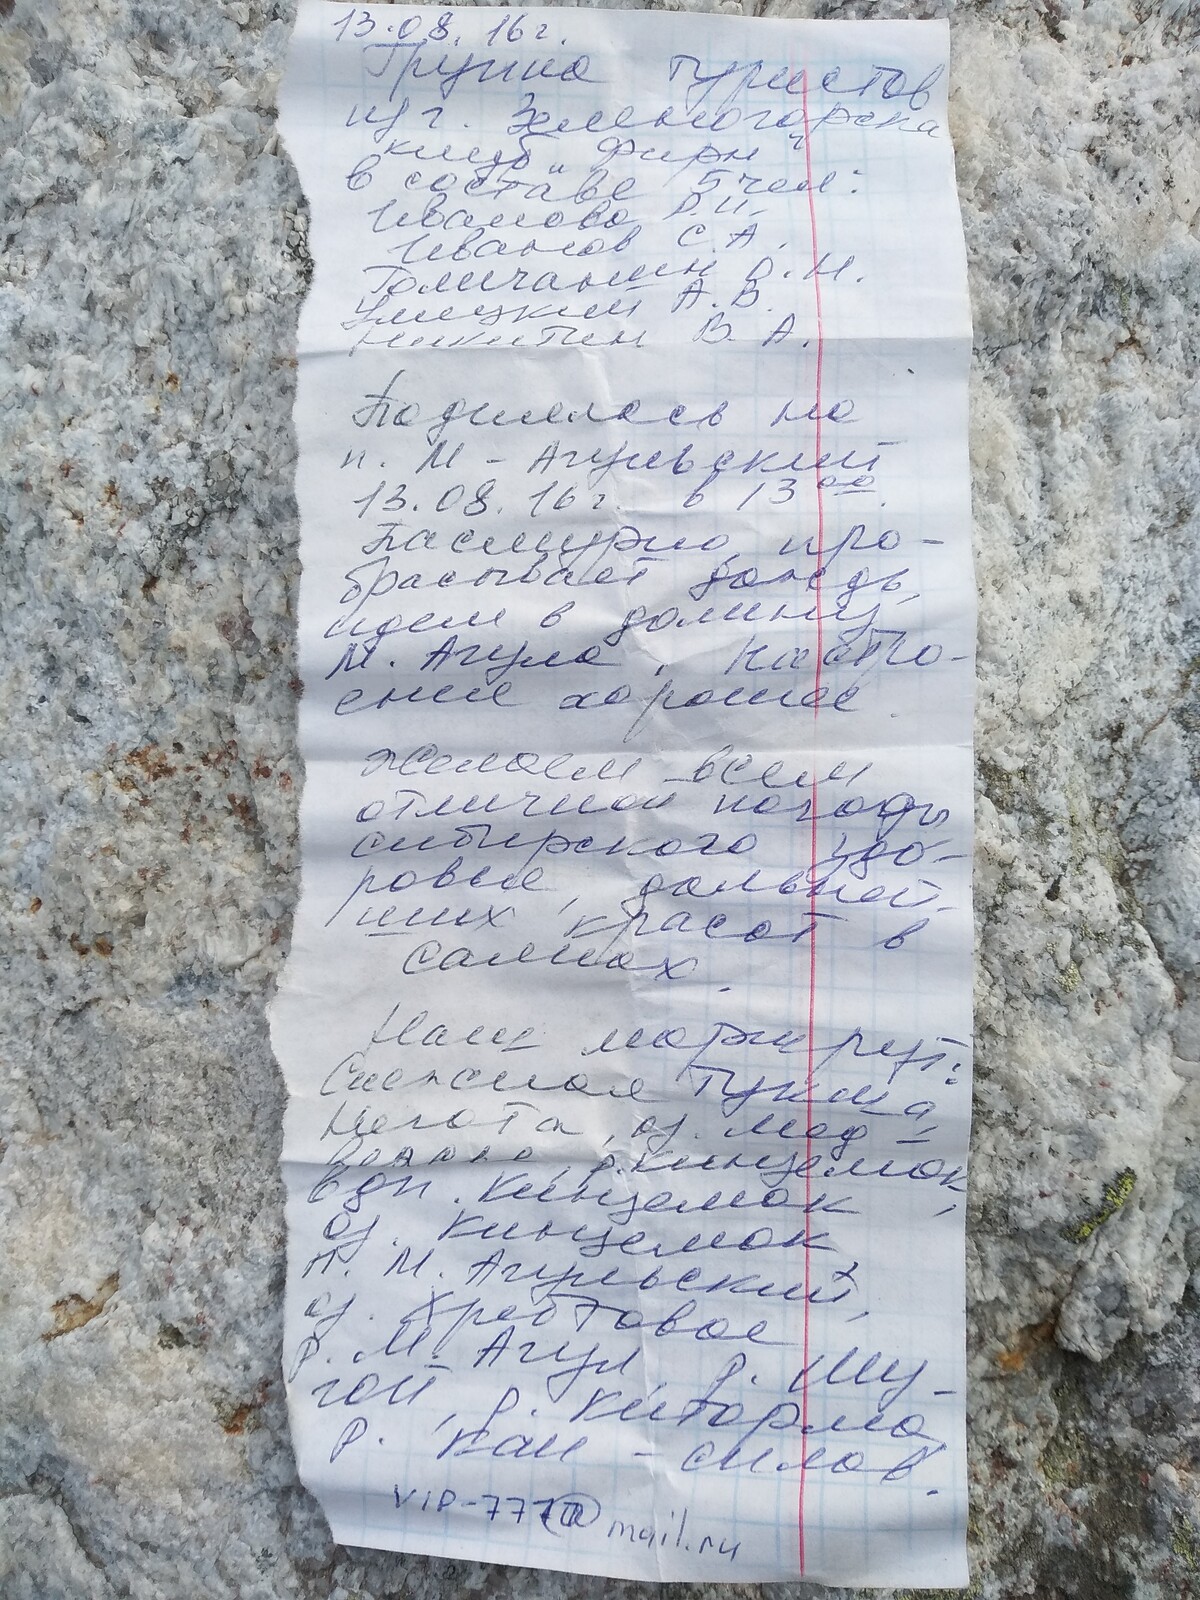 13.08.16г.
Группа туристов
из г. Зеленогорска
клуб "Фирн"
в составе 5 чел:
Иванова Р.И.
Иванов С.А.
Толичанин О.Н.
Улицкий А.В.
Никитин В.А.
Поднялась на
п. М-Агульский
13.08.16г. в 13 00.
Пасмурно, про-
брасывает дождь,
идем в долину
М. Агула. Настро-
ение хорошее.
Желаем всем
отличной погоды
сибирского здо-
ровье, дальней-
ших красот в
саянах.
Наш маршрут:
Снежная Тукша,
Негота, оз. Мед-
вежье, р. Кинземок,
вдп. Кинземок,
оз. Кинземок,
п. М. Агульский,
оз. Хребтовое
р. М-Агул, р. Шу-
гой, р. Китарма,
р. Кан - сплав.
@mail.ru